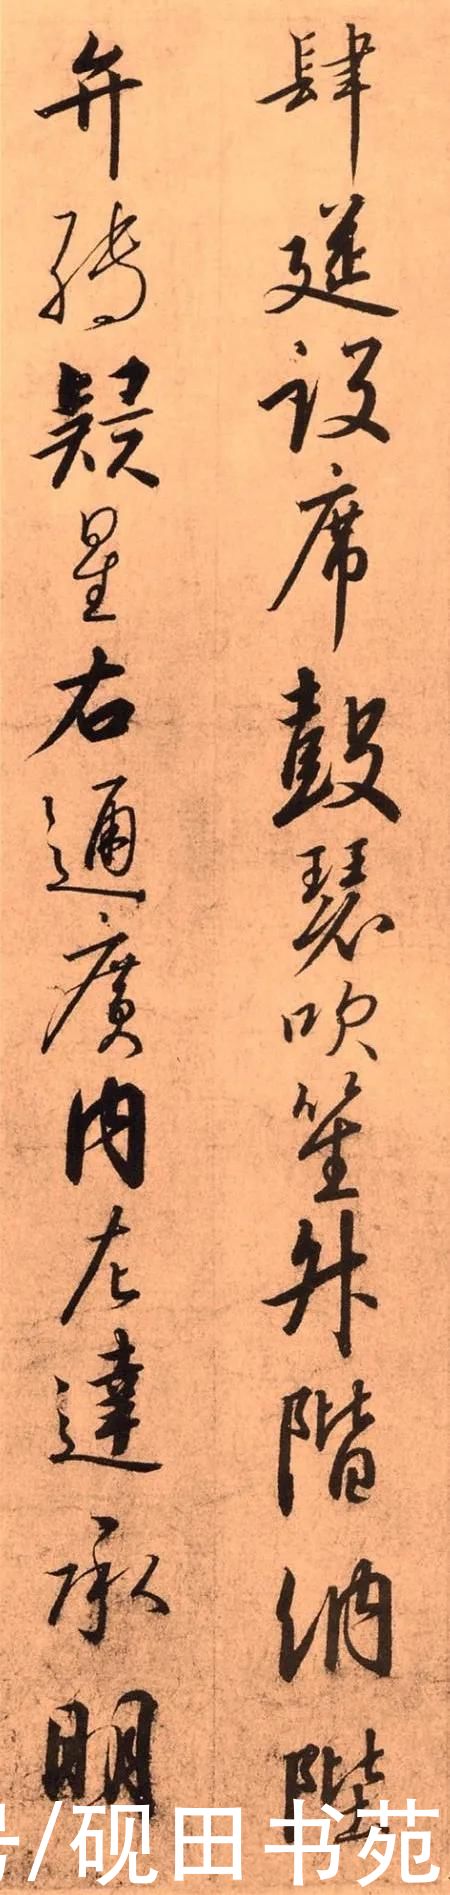 肆筵设席鼓瑟吹笙升階納陛
弁转疑星右通廣内左達承明
号/砚田书苑